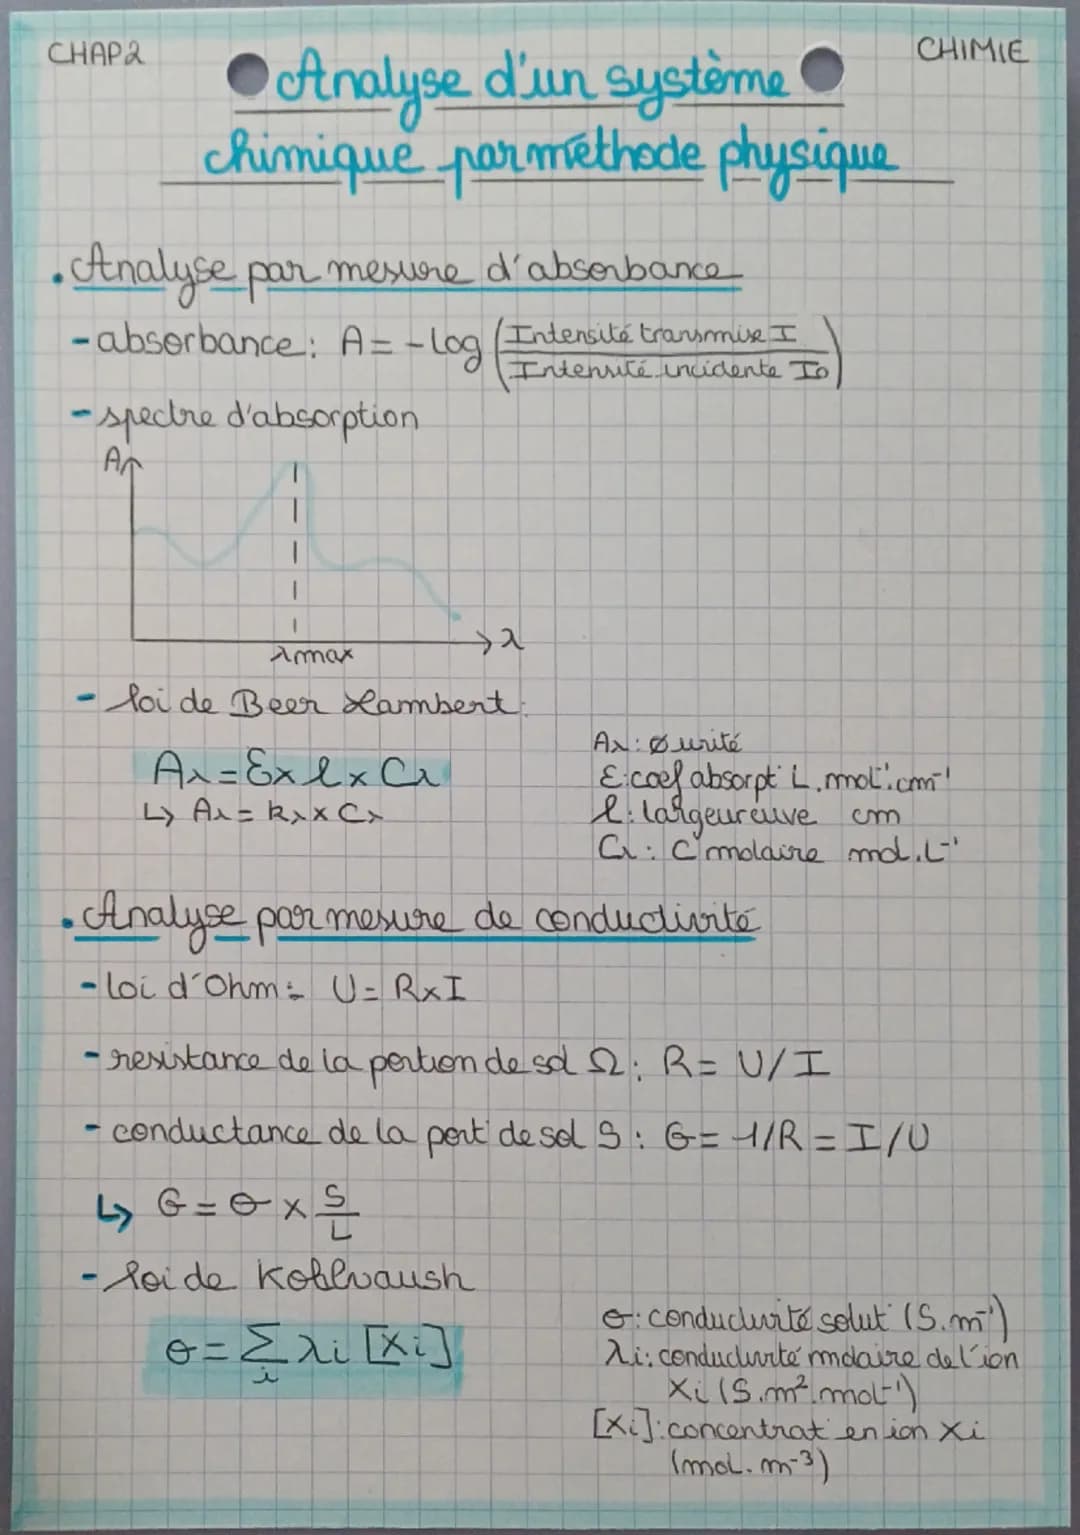 CHAP2
CHIMIE
Analyse d'un système
chimique par méthode physique
. Analyse par mesure d'absorbance
- absorbance : A = -log (Intensité transmise I / Intensité incidente I0)
- spectre d'absorption
A
λ
λmax
- loi de Beer Lambert :
Aλ = Ɛ x l x Cλ
↳ Aλ = kλ x Cλ
Aλ : Ø unité
Ɛ : coef absorpt° L.mol⁻¹.cm⁻¹
l : largeur cuve cm
Cλ : C° molaire mol.L⁻¹
. Analyse par mesure de conductivité
- loi d'Ohm : U = RxI
- resistance de la portion de sol Ω : R = U/I
- conductance de la port° de sol S : G = 1/R = I/U
↳ G = σ x S/L
- loi de Kohlvaush
σ = Σi λi [Xi]
σ : conductivité solut° (S.m⁻¹)
λi : conductivité molaire de l'ion
Xi (S.m².mol⁻¹)
[Xi] : concentrat° en ion Xi
(mol.m⁻³)